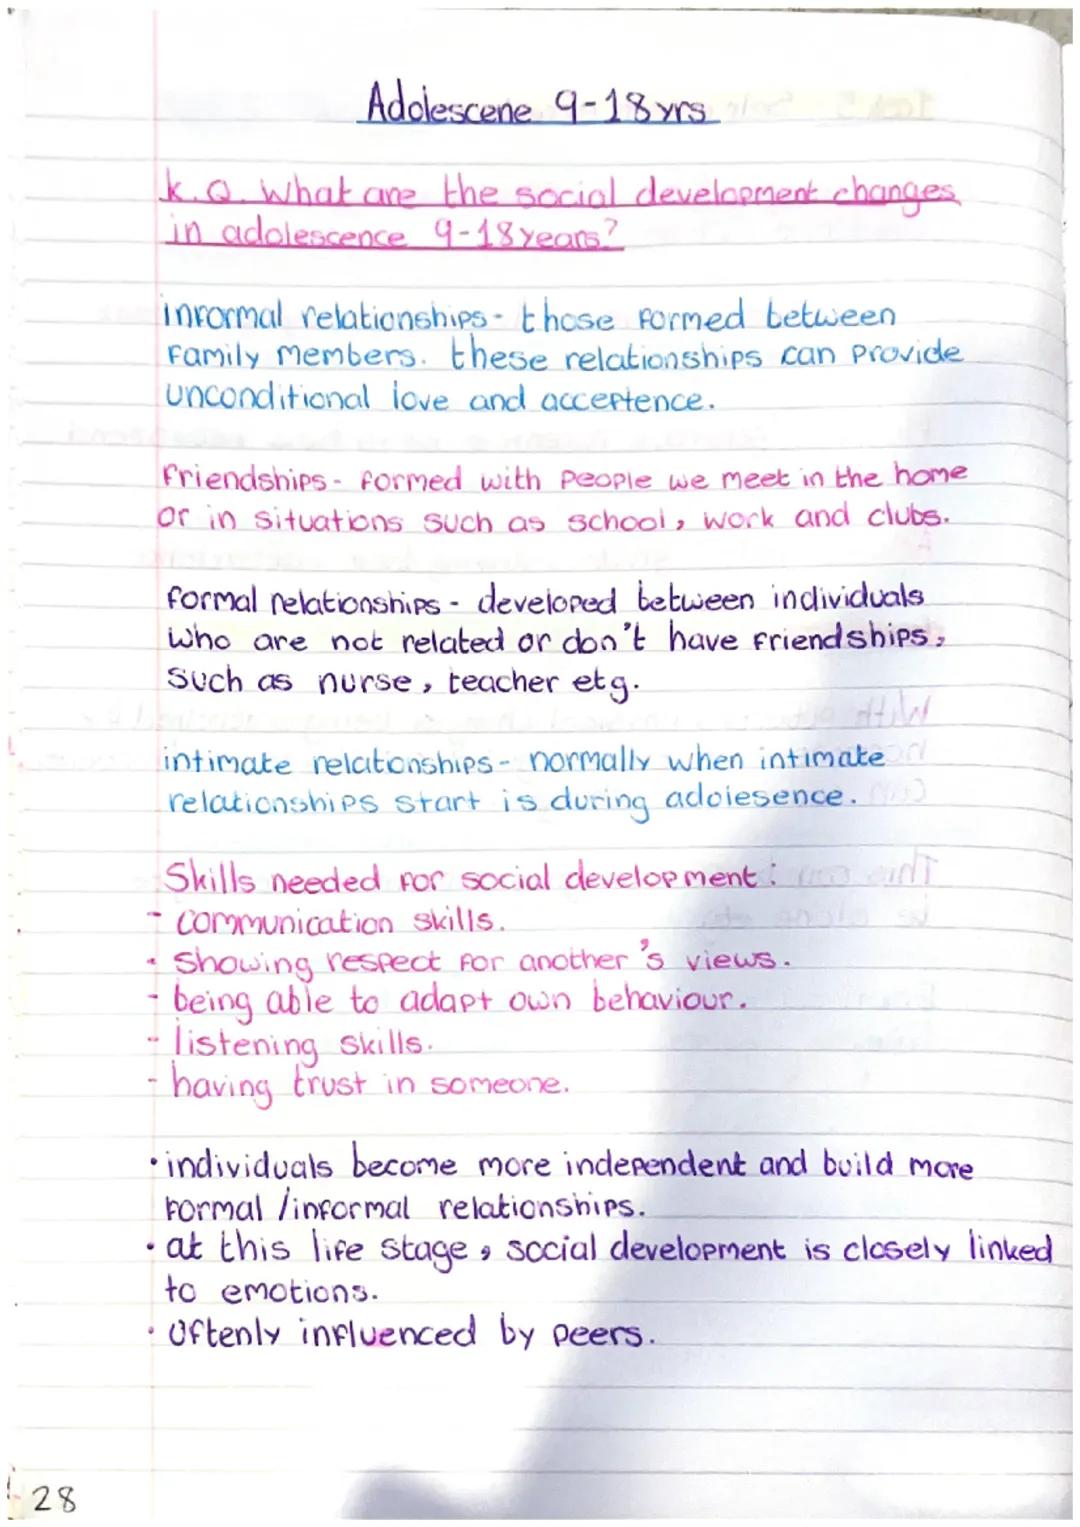 Adolescene 9-18yrs
K.Q. What are the social development changes
in adolescence 9-18years?
informal relationships - those formed between
family members. these relationships can provide
unconditional love and acceptence.
friendships - formed with people we meet in the home
or in situations such as school, work and clubs.
formal relationships - developed between individuals
who are not related or don't have friendships,
such as nurse, teacher etg.
intimate relationships - normally when intimate
relationships start is during adolesence.
Skills needed for social development:
- communication skills.
- showing respect for another's views.
- being able to adapt own behaviour.
- listening skills.
- having trust in someone.
• individuals become more independent and build more
formal /informal relationships.
• at this life stage, social development is closely linked
to emotions.
• Oftenly influenced by peers.
28